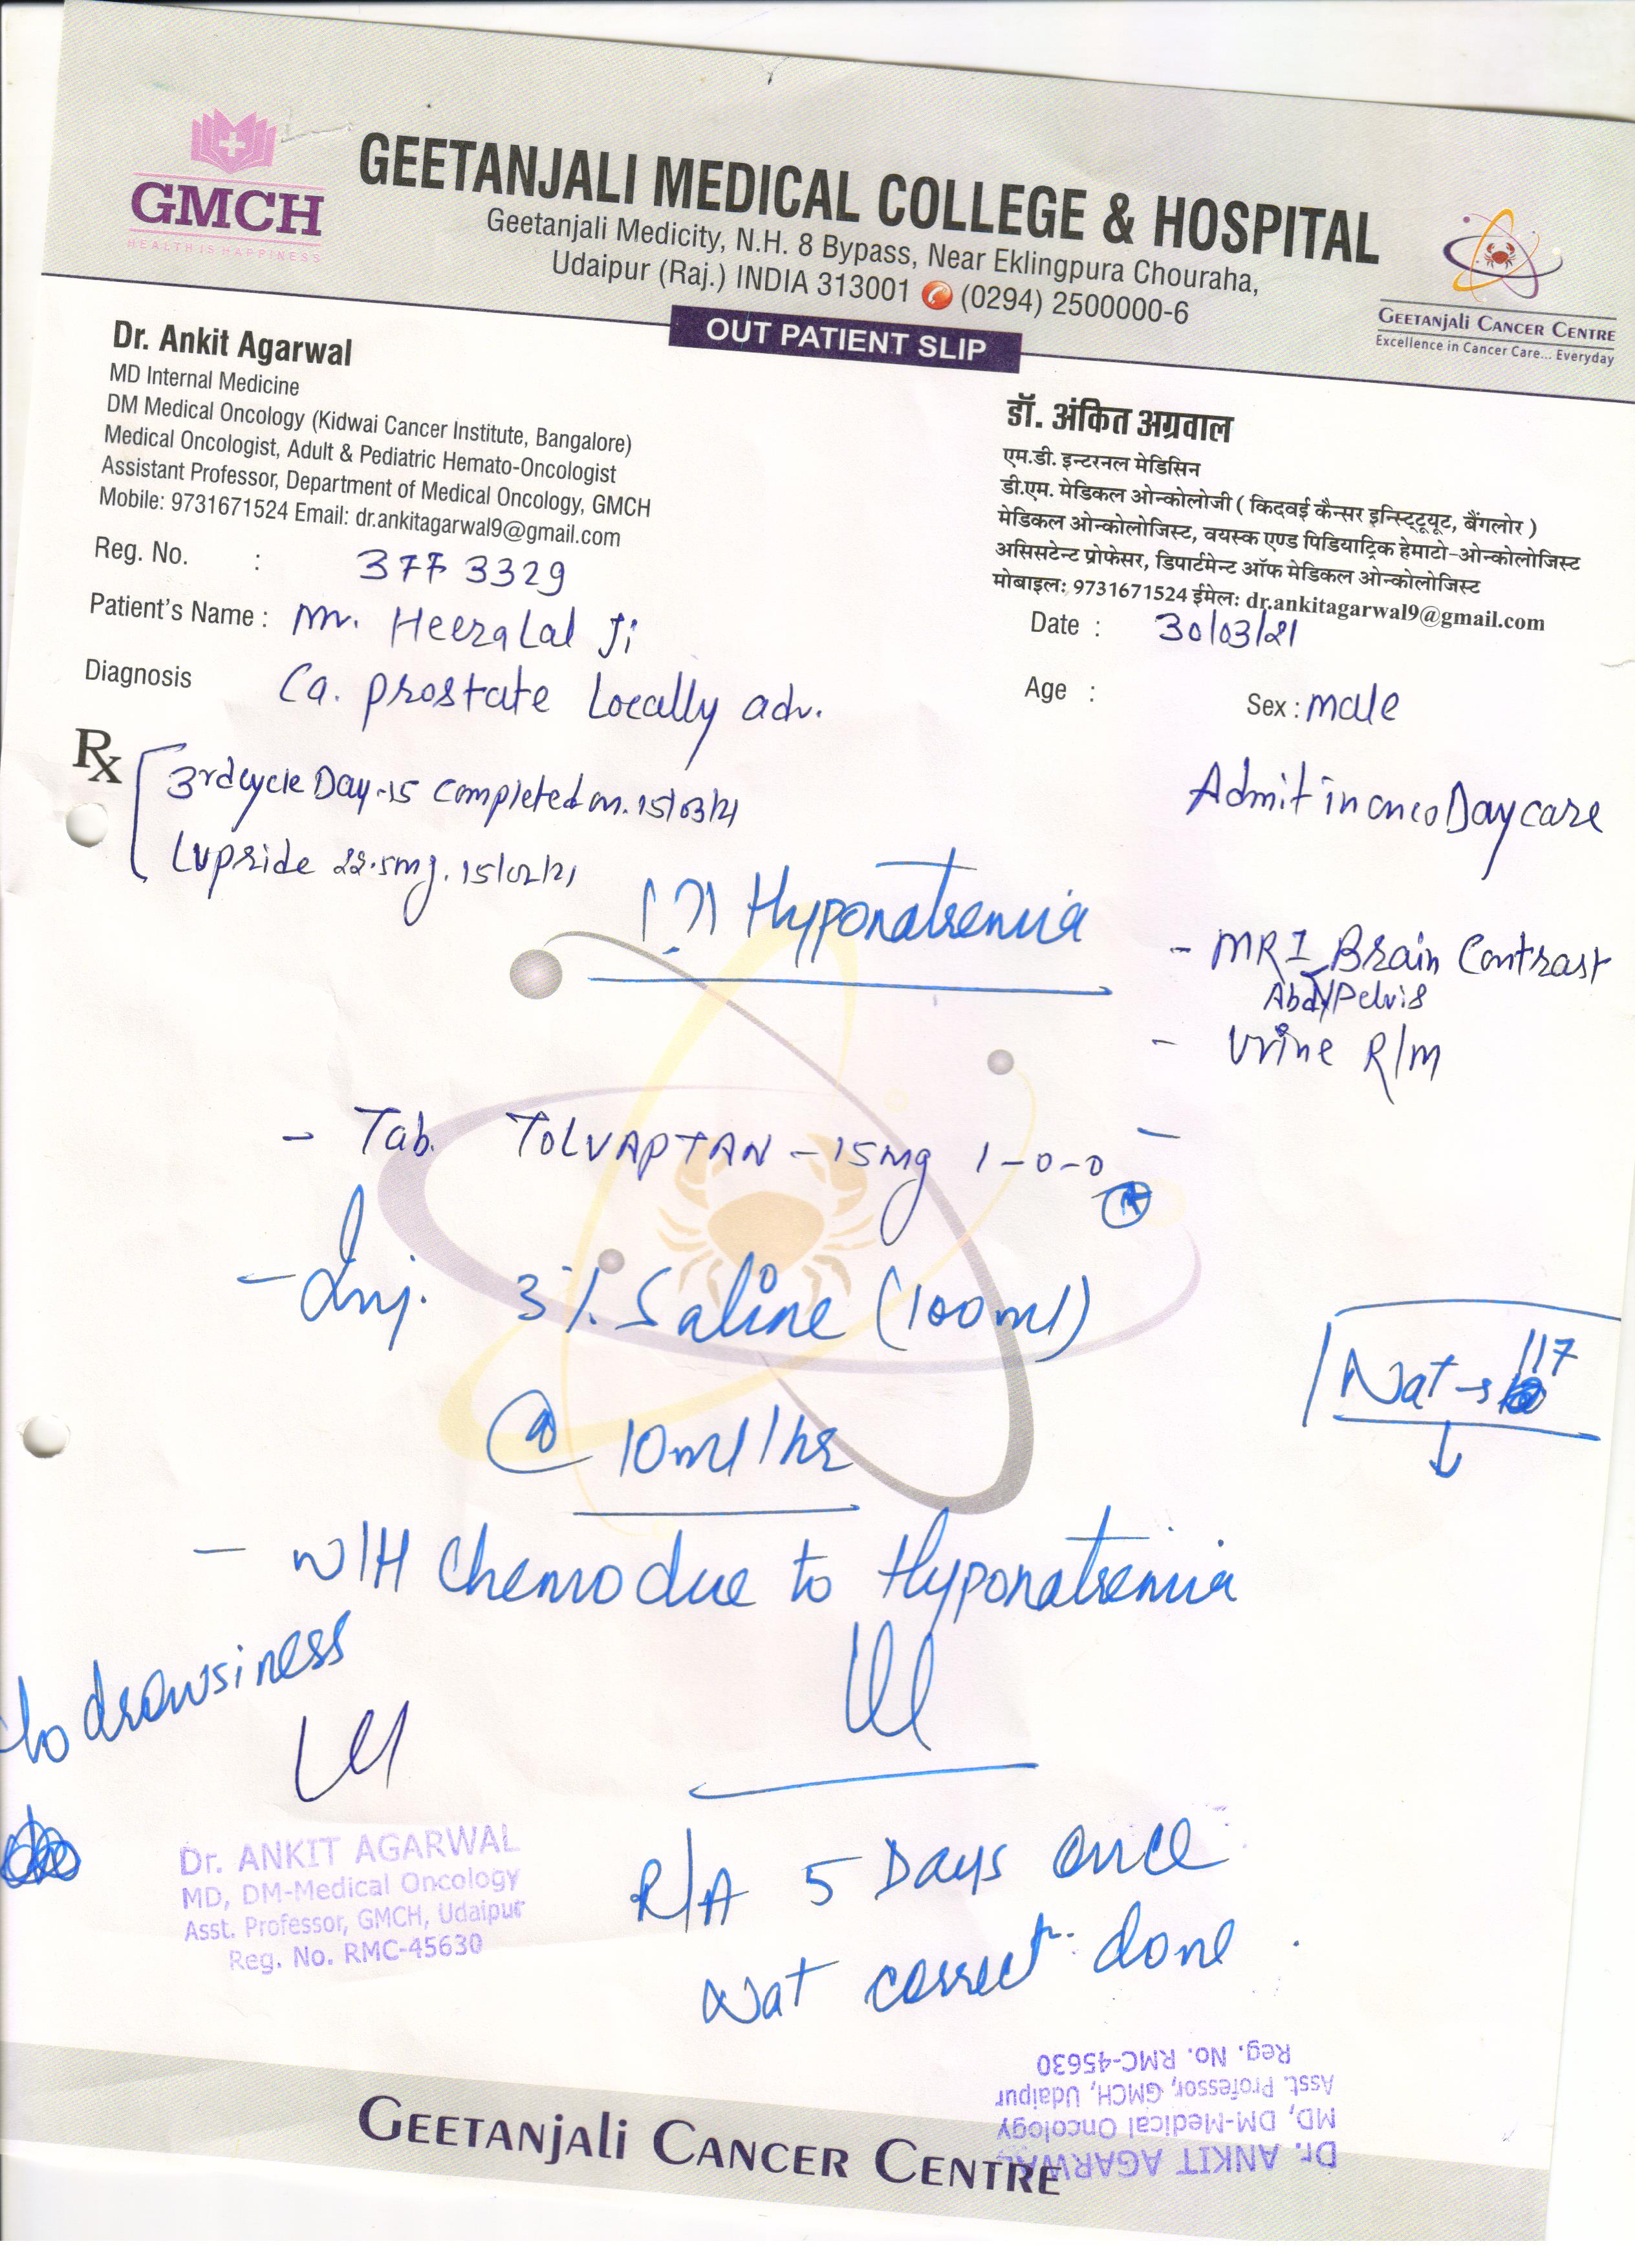 GMCH
HEALTH IS HAPPINESS
GEETANJALI MEDICAL COLLEGE & HOSPITAL
Geetanjali Medicity, N.H. 8 Bypass, Near Eklingpura Chouraha,
Udaipur (Raj.) INDIA 313001 (0294) 2500000-6
GEETANJALI CANCER CENTRE
Excellence in Cancer Care... Everyday
OUT PATIENT SLIP
Dr. Ankit Agarwal
MD Internal Medicine
DM Medical Oncology (Kidwai Cancer Institute, Bangalore)
Medical Oncologist, Adult & Pediatric Hemato-Oncologist
Assistant Professor, Department of Medical Oncology, GMCH
Mobile: 9731671524 Email: dr.ankitagarwal9@gmail.com
डॉ. अंकित अग्रवाल
एम.डी. इन्टरनल मेडिसिन
डी.एम. मेडिकल ओन्कोलोजी ( किदवई कैन्सर इन्स्टिट्यूट, बैंगलोर )
मेडिकल ओन्कोलोजिस्ट, वयस्क एण्ड पिडियाट्रिक हेमाटो-ओन्कोलोजिस्ट
असिसटेन्ट प्रोफेसर, डिपार्टमेन्ट ऑफ मेडिकल ओन्कोलोजिस्ट
मोबाइल: 9731671524 ईमेल: dr.ankitagarwal9@gmail.com
Reg. No. : 3773329
Patient's Name : Mr. Heeralal Ji
Date : 30/03/21
Diagnosis Ca. prostate Locally adv.
Age : Sex : male
Rx
3rd cycle Day-15 completed on. 15/03/21
Lupride 22.5mg. 15/02/21
Admit in onco Day care
(?) Hyponatremia
- MRI Brain Contrast
Abd/Pelvis
- Urine R/m
- Tab. TOLVAPTAN - 15mg 1-0-0
- Inj. 3% Saline (100ml)
@ 10ml/hr
Na+ → 117
↓
- W/H Chemo due to Hyponatremia
drowsiness
Dr. ANKIT AGARWAL
MD, DM-Medical Oncology
Asst. Professor, GMCH, Udaipur
Reg. No. RMC-45630
R/A 5 Days once
Na+ correct done.
Dr. ANKIT AGARWAL
MD, DM-Medical Oncology
Asst. Professor, GMCH, Udaipur
Reg. No. RMC-45630
GEETANJALI CANCER CENTRE